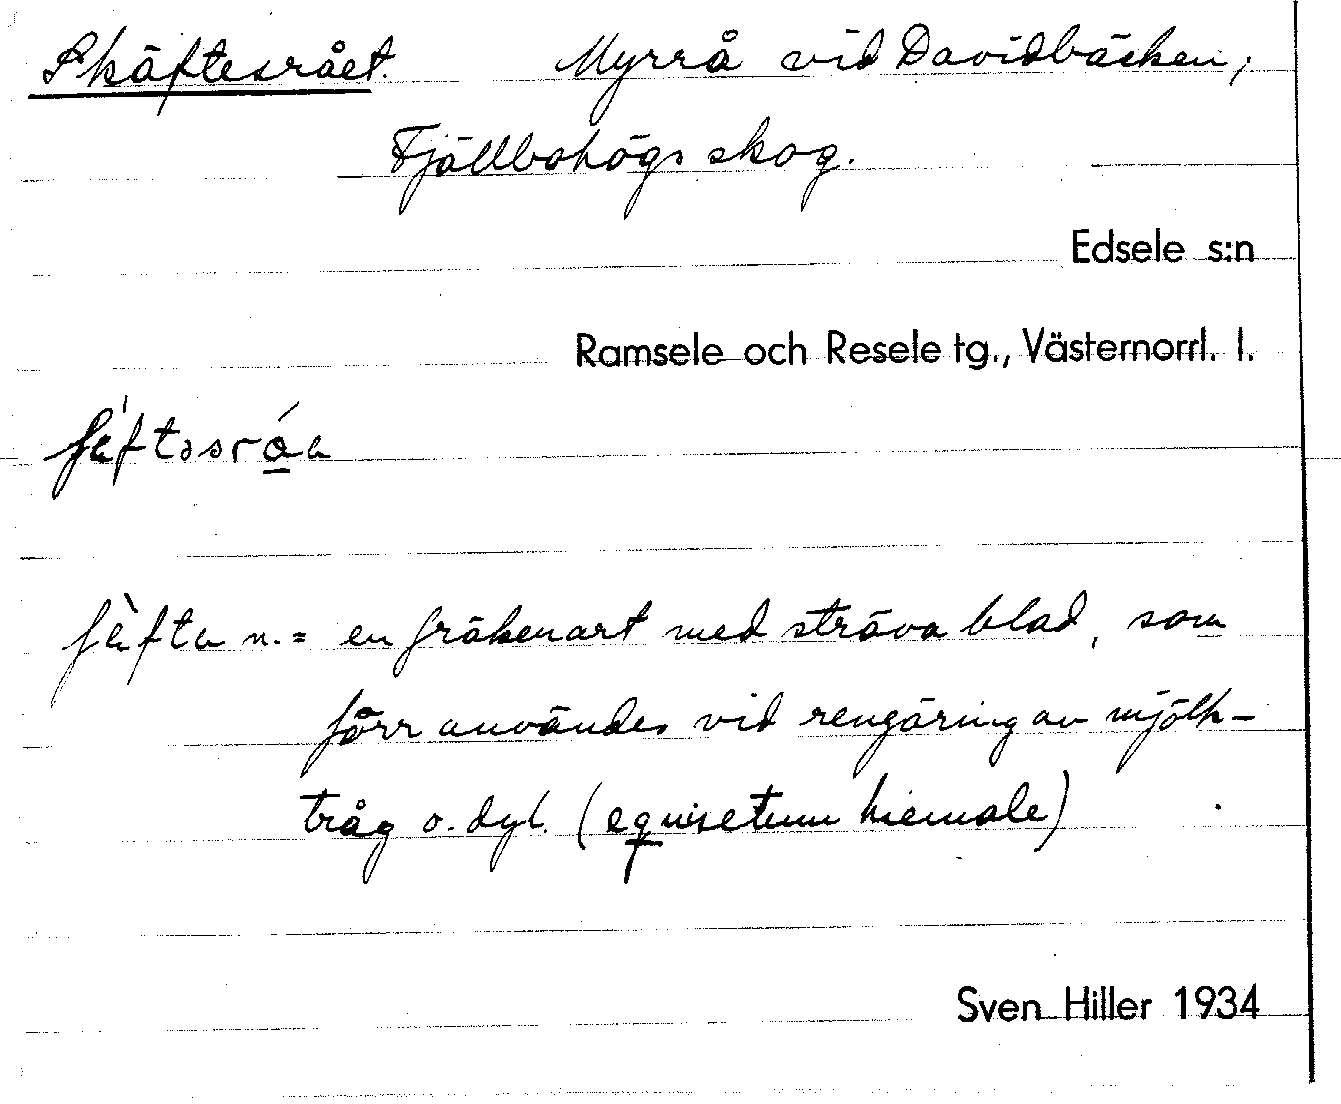 Skäftesrået. Myrrå vid Davidbäcken,
Fjällbohögs skog.
Edsele s:n
Ramsele och Resele tg., Västernorrl. l.
ʃèftəsrǻa
ʃèfta n. = en fräkenart med sträva blad, som
förr användes vid rengöring av mjölk-
tråg o. dyl. (equisetum hiemale)
Sven Hiller 1934